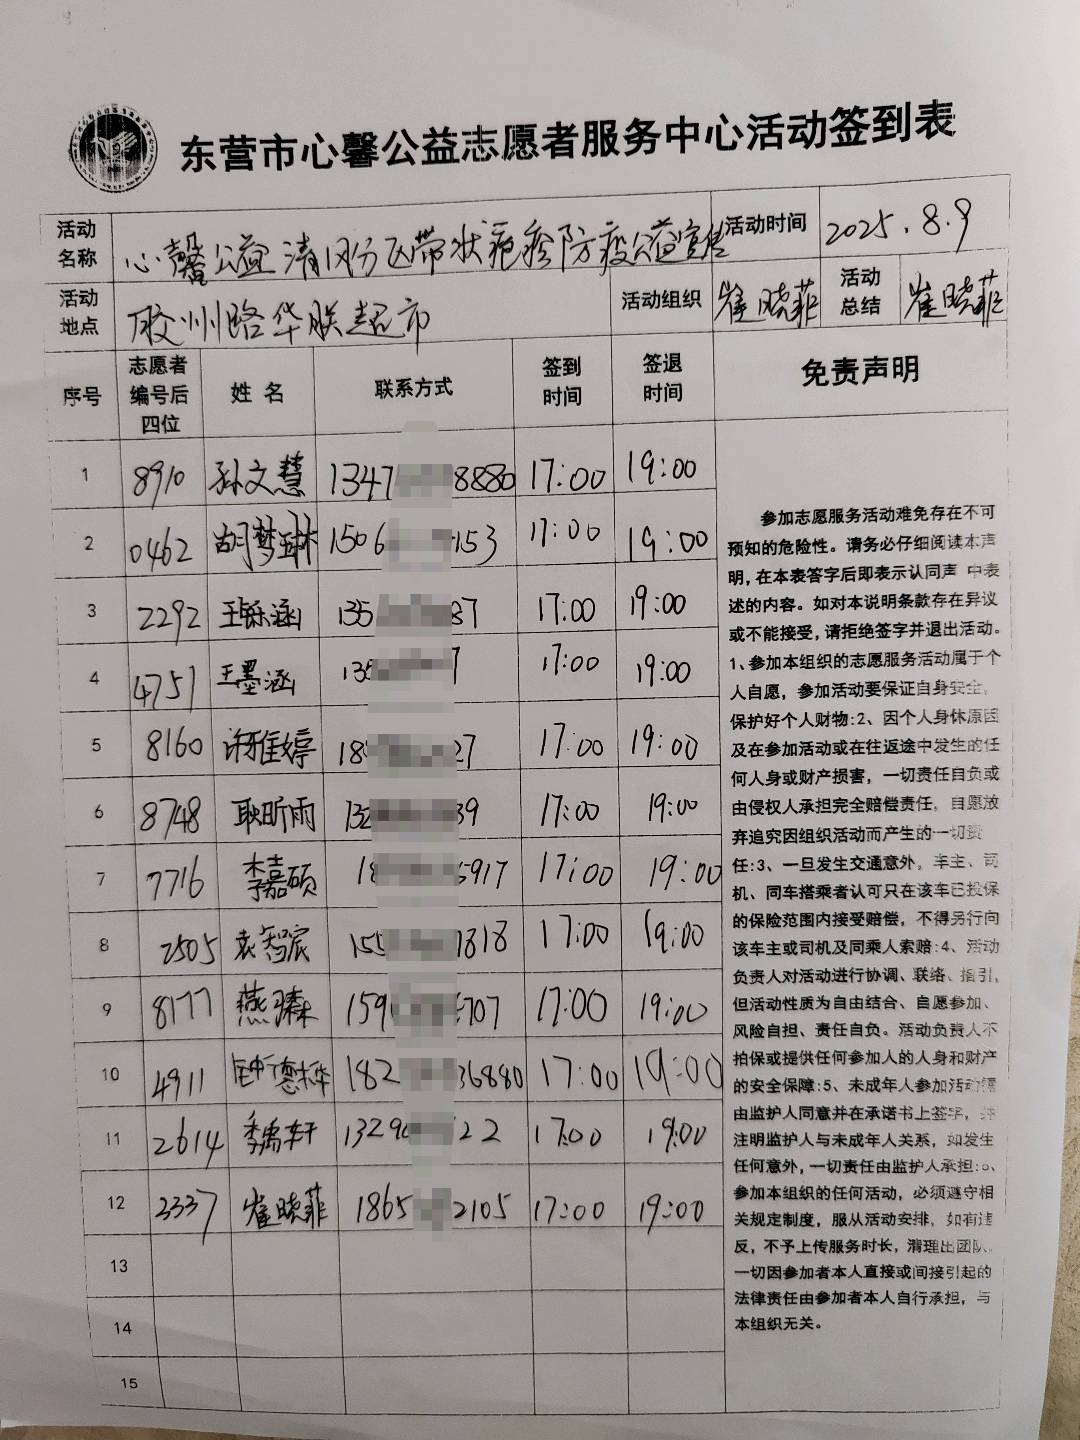 东营市心馨公益志愿者服务中心活动签到表
活动名称 心馨公益清风分区带状疱疹防疫公益宣传 活动时间 2025.8.9
活动地点 胶州路华联超市 活动组织 崔晓菲 活动总结 崔晓菲
序号 志愿者编号后四位 姓名 联系方式 签到时间 签退时间 免责声明
1 8910 孙文慧 1347 8880 17:00 19:00
2 0462 胡梦琳 1506 153 17:00 19:00
3 2292 王铄涵 135 87 17:00 19:00
4 4751 王墨涵 135 7 17:00 19:00
5 8160 许雅婷 18 27 17:00 19:00
6 8748 耿昕雨 132 39 17:00 19:00
7 7716 李嘉硕 18 5917 17:00 19:00
8 2505 袁智宸 155 1818 17:00 19:00
9 8177 燕 159 707 17:00 19:00
10 4911 德桦 182 36880 17:00 19:00
11 2614 李禹轩 1329 22 17:00 19:00
12 3337 崔晓菲 1865 2105 17:00 19:00
13
14
15
参加志愿服务活动难免存在不可
预知的危险性。请务必仔细阅读本声
明,在本表答字后即表示认同声 中表
述的内容。如对本说明条款存在异议
或不能接受,请拒绝签字并退出活动。
1、参加本组织的志愿服务活动属于个
人自愿，参加活动要保证自身安全，
保护好个人财物:2、因个人身体原因
及在参加活动或在往返途中发生的任
何人身或财产损害，一切责任自负或
由侵权人承担完全赔偿责任，自愿放
弃追究因组织活动而产生的一切责
任:3、一旦发生交通意外，车主、司
机、同车搭乘者认可只在该车已投保
的保险范围内接受赔偿，不得另行向
该车主或司机及同乘人索赔:4、活动
负责人对活动进行协调、联络、指引，
但活动性质为自由结合、自愿参加、
风险自担、责任自负。活动负责人不
担保或提供任何参加人的人身和财产
的安全保障:5、未成年人参加活动需
由监护人同意并在承诺书上签字，并
注明监护人与未成年人关系，如发生
任何意外,一切责任由监护人承担:6、
参加本组织的任何活动，必须遵守相
关规定制度，服从活动安排，如有违
反，不予上传服务时长，清理出团队。
一切因参加者本人直接或间接引起的
法律责任由参加者本人自行承担，与
本组织无关。